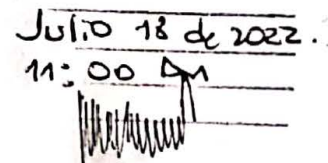 Julio 18 de 2022.
11:00 AM